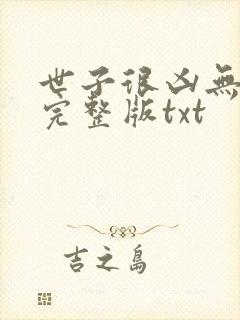 世子很凶無
完整版txt
吉之島